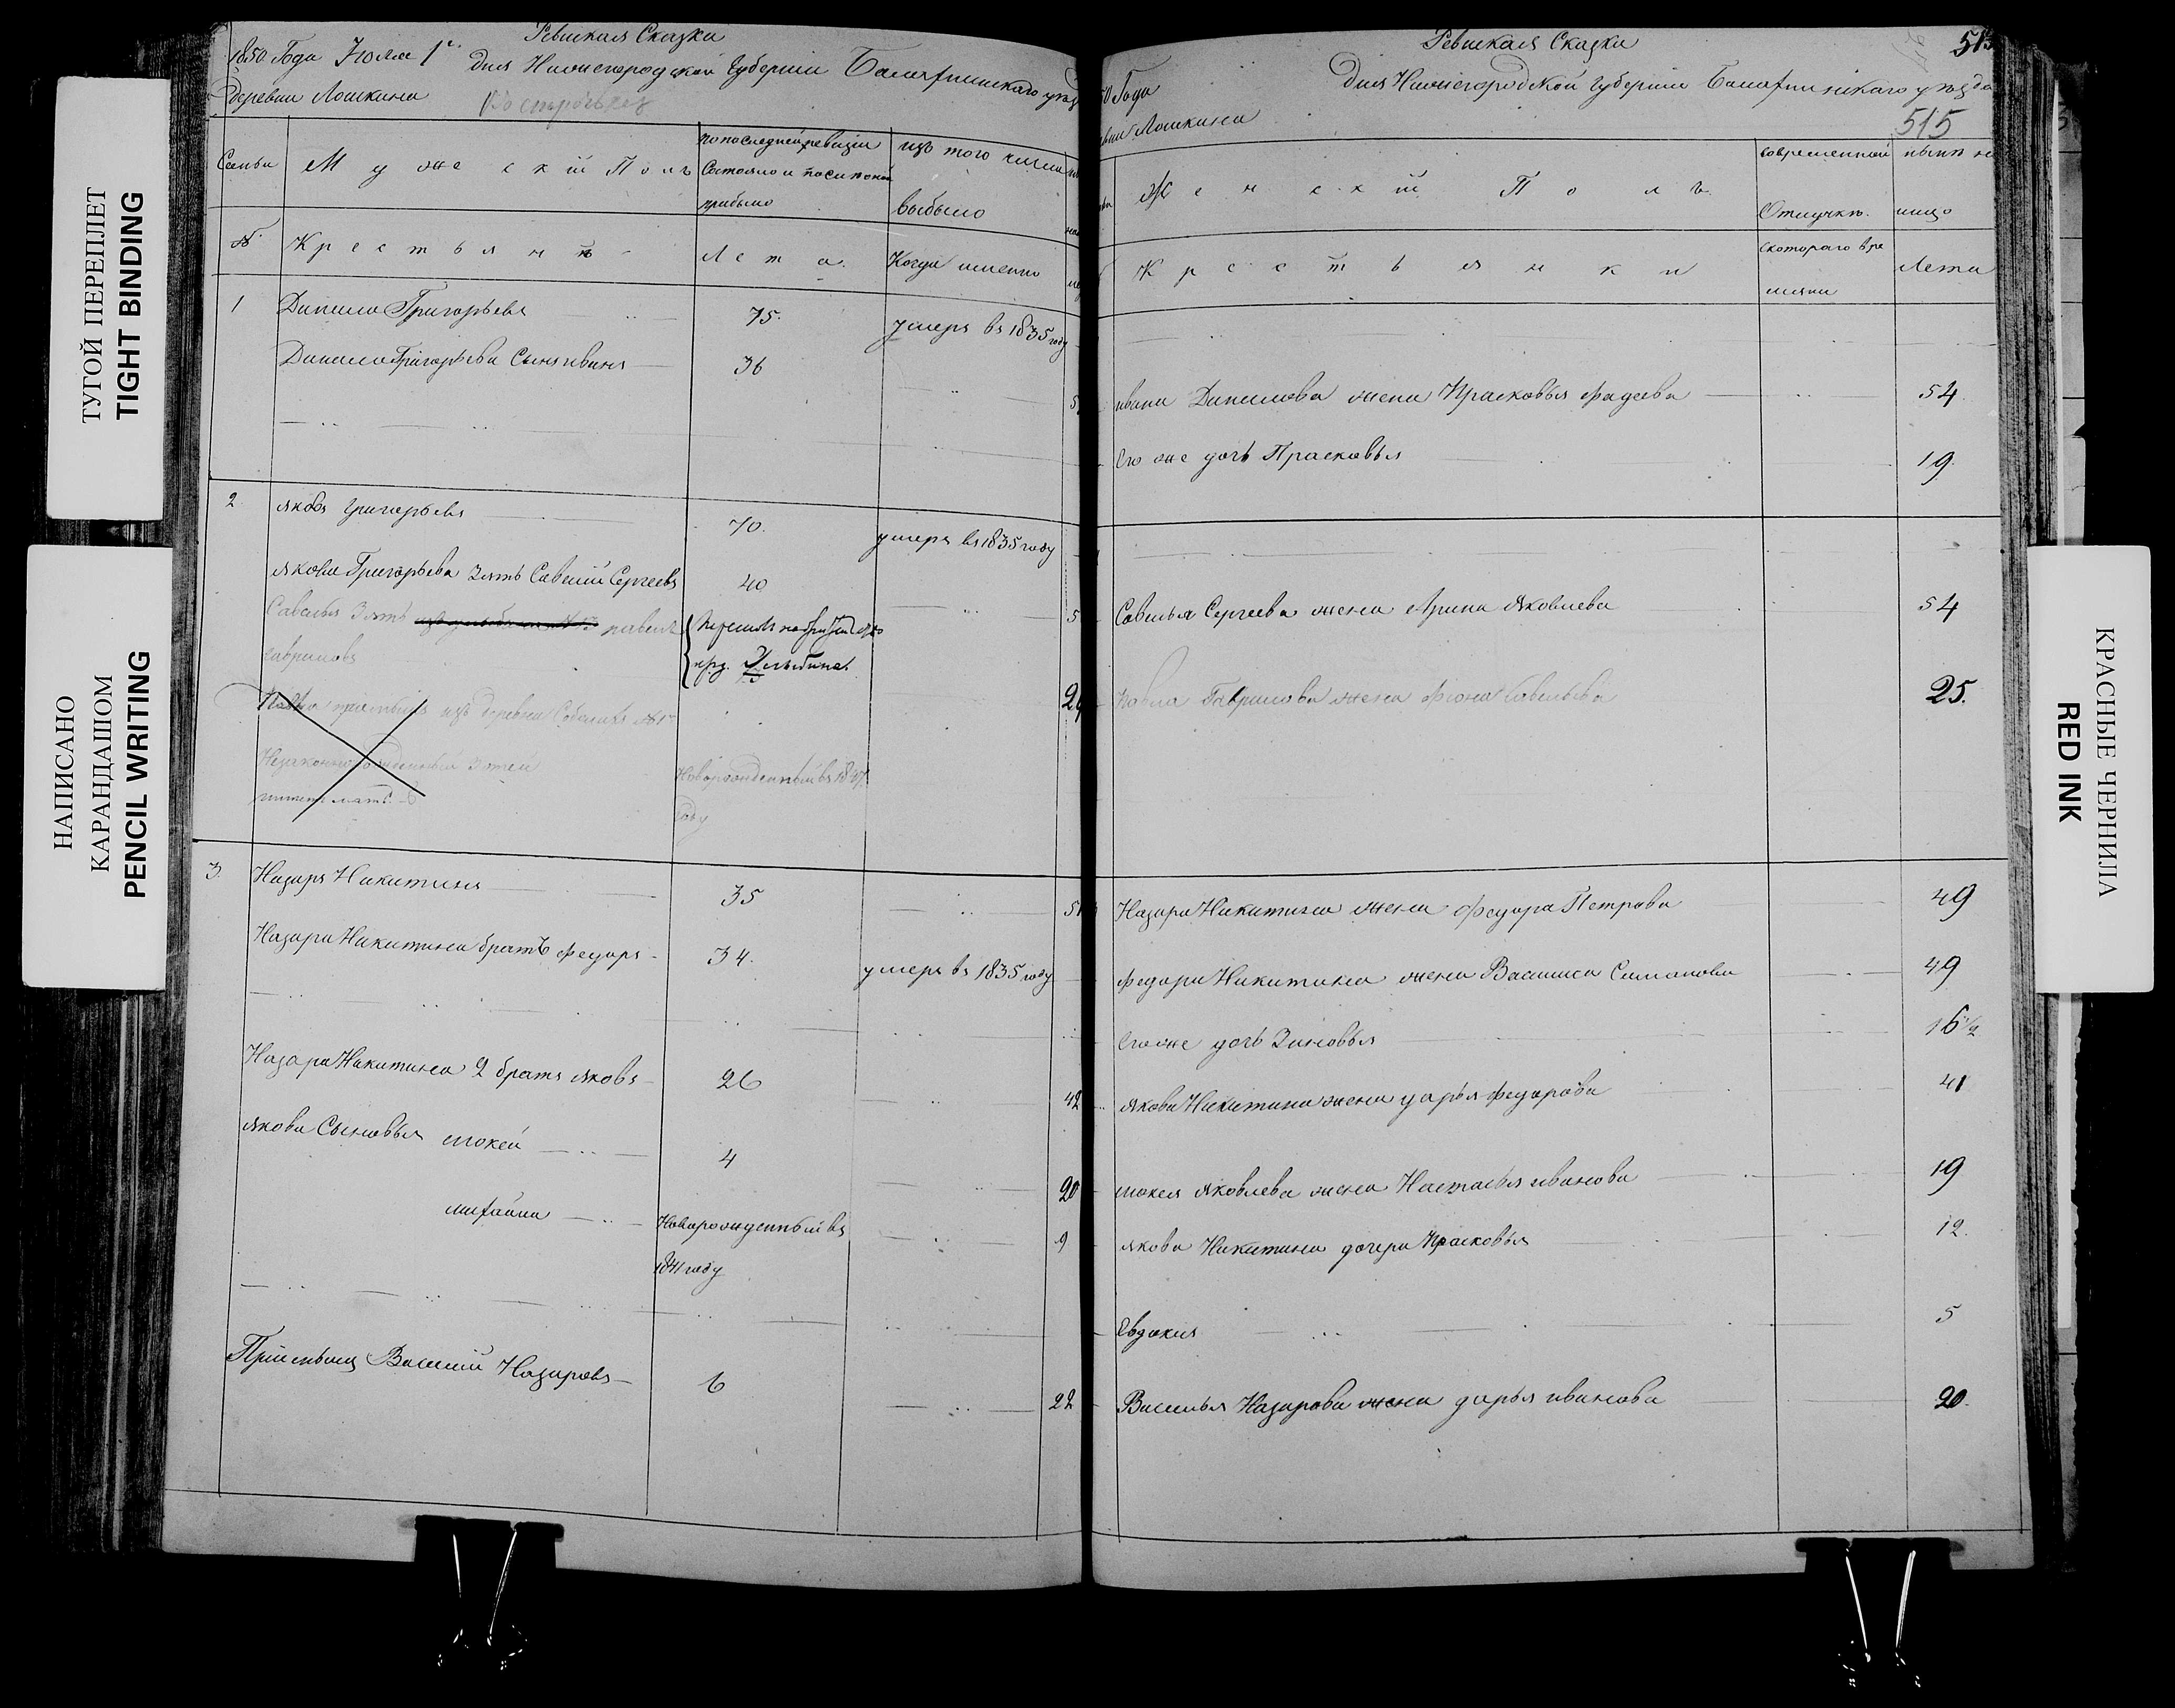 ТУГОЙ ПЕРЕПЛЕТ
TIGHT BINDING
НАПИСАНО
КАРАНДАШОМ
PENCIL WRITING
Ревизская Сказка
1850 Года Июля 1го дня Нижегородской Губернии Балахнинскаго уѣз
деревни Лошкина
Семьи
Мужескій Полъ
по последней ревизіи
Состояло и послѣ поной
прибыло
изъ того числа
выбыло
№
Крестьянъ
Лета
Когда именно
1 Данило Григорьевъ 75. умеръ въ 1835 году
Данило Григорьева Сынъ иванъ 36
2. яковъ Григорьевъ 70. умеръ въ 1835 году
якова Григорьева Зять Савелій Сергеевъ 40
Савелья Зять павелъ
гавриловъ
изъ деревни
Незаконнорожденный
Новорожденный въ 1847
году
3. Назаръ Никитинъ 35
Назара Никитина братъ Федоръ 34. умеръ въ 1835 году
Назара Никитина 2 братъ яковъ 26 42
якова Сыновья мокей 4 20
михайла Новорожденный въ 9
1841 году
Пріемышъ Василій Назаровъ 6 22
Ревизская Сказка
50 Года дня Нижегородской Губерніи Балахнинскаго уѣзда
Лошкина
515
Женскій Полъ
во временной
Отлучкѣ.
нынѣ на
лицо
Крестьянки
с котораго вре
мяни
Лета
ивана Данилова жена Прасковья Фадеева 54.
Его же дочь Прасковья 19.
Савелья Сергеева жена Арина Яковлева 54
Павла Гаврилова жена Фіона Савельева 25.
Назара Никитина жена Федора Петрова 49
Федора Никитина жена Василиса Симанова 49
Его же дочь Зиновья 16 1/2
якова Никитина жена дарья Федорова 41
мокея Яковлева жена Настасья иванова 19
якова Никитина дочери Прасковья 12.
Евдокия 5
Василья Назарова жена дарья иванова 20.
КРАСНЫЕ ЧЕРНИЛА
RED INK